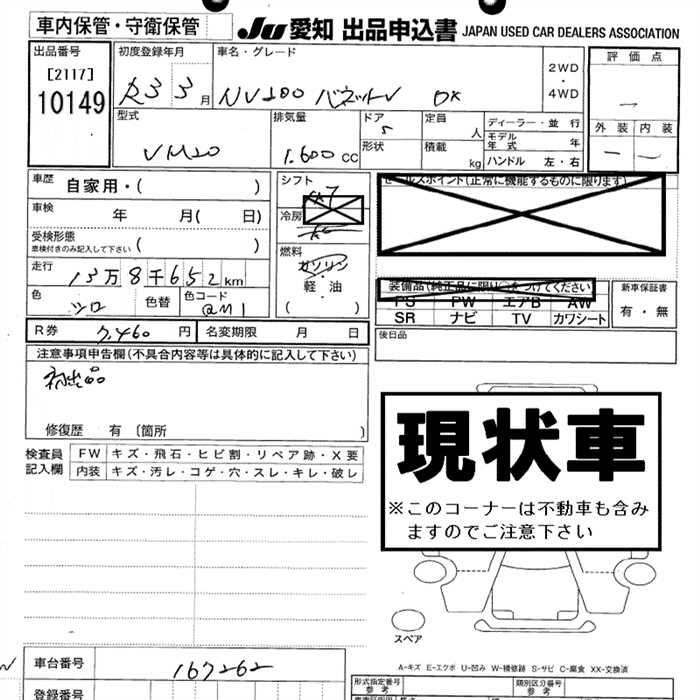 車内保管・守衛保管
JU 愛知 出品申込書 JAPAN USED CAR DEALERS ASSOCIATION
出品番号
[2117]
10149
初度登録年月
R3 3月
車名・グレード
NV200 バネットV DX
2WD
・
4WD
評価点
一
外装 内装
一 一
型式
VM20
排気量
1.600cc
ドア
5
形状
定員
人
積載
kg
ディーラー・並行
モデル
年式 年
ハンドル 左・右
車歴
自家用・( )
車検
年 月( 日)
受検形態
車検付きのみ記入して下さい ( )
走行
13万8千652km
色
シロ
色替
色コード
QM1
シフト
冷房
燃料
ガソリン
軽・油
( )
セールスポイント(正常に機能するものに限ります)
装備品(純正品に限り○をつけてください)
PS PW エアB AW
SR ナビ TV カワシート
新車保証書
有・無
後日品
R券 7,460円
名変期限 月 日
注意事項申告欄(不具合内容等は具体的に記入して下さい)
初出品
修復歴 有 〔箇所 〕
検査員
記入欄
FW キズ・飛石・ヒビ割・リペア跡・X要
内装 キズ・汚レ・コゲ・穴・スレ・キレ・破レ
現状車
※このコーナーは不動車も含み
ますのでご注意下さい
スペア
A-キズ E-エクボ U-凹み W-補修跡 S-サビ C-腐食 XX-交換済
車台番号
167262
登録番号
形式指定番号
参考
類別区分番号
参考